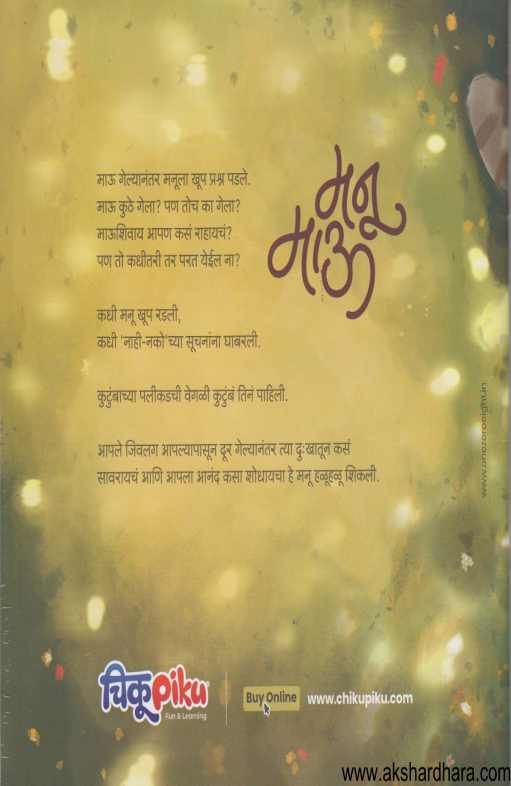 माऊ गेल्यानंतर मनूला खूप प्रश्न पडले.
माऊ कुठे गेला? पण तोच का गेला?
माऊशिवाय आपण कसं राहायचं?
पण तो कधीतरी तर परत येईल ना?
मनू
माऊ
कधी मनू खूप रडली,
कधी 'नाही-नको'च्या सूचनांना घाबरली.
कुटुंबाच्या पलीकडची वेगळी कुटुंबं तिनं पाहिली.
आपले जिवलग आपल्यापासून दूर गेल्यानंतर त्या दुःखातून कसं
सावरायचं आणि आपला आनंद कसा शोधायचा हे मनू हळूहळू शिकली.
www.onezeroeight.in
चिकूpiku
Fun & Learning
Buy Online www.chikupiku.com
www.akshardhara.com